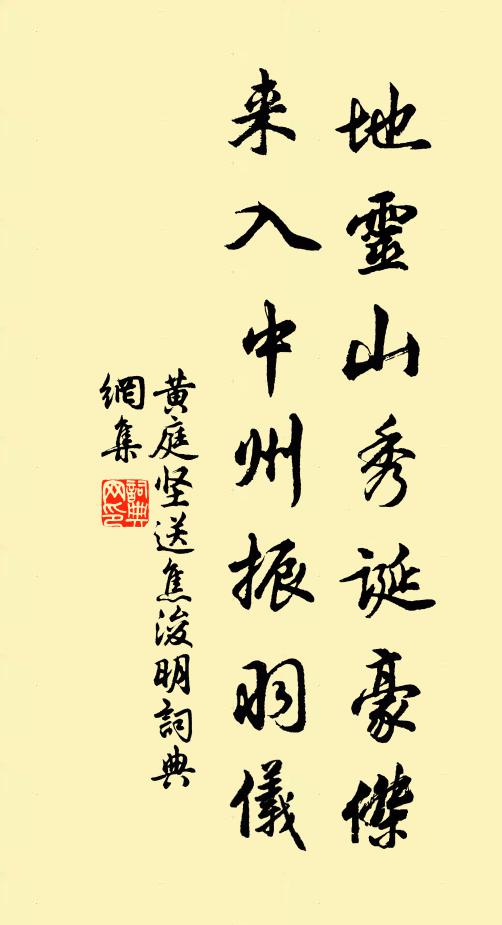 地靈山秀誕豪傑
来入中州振羽儀
黄庭坚送焦浚明詞典
網集
詞典
网印